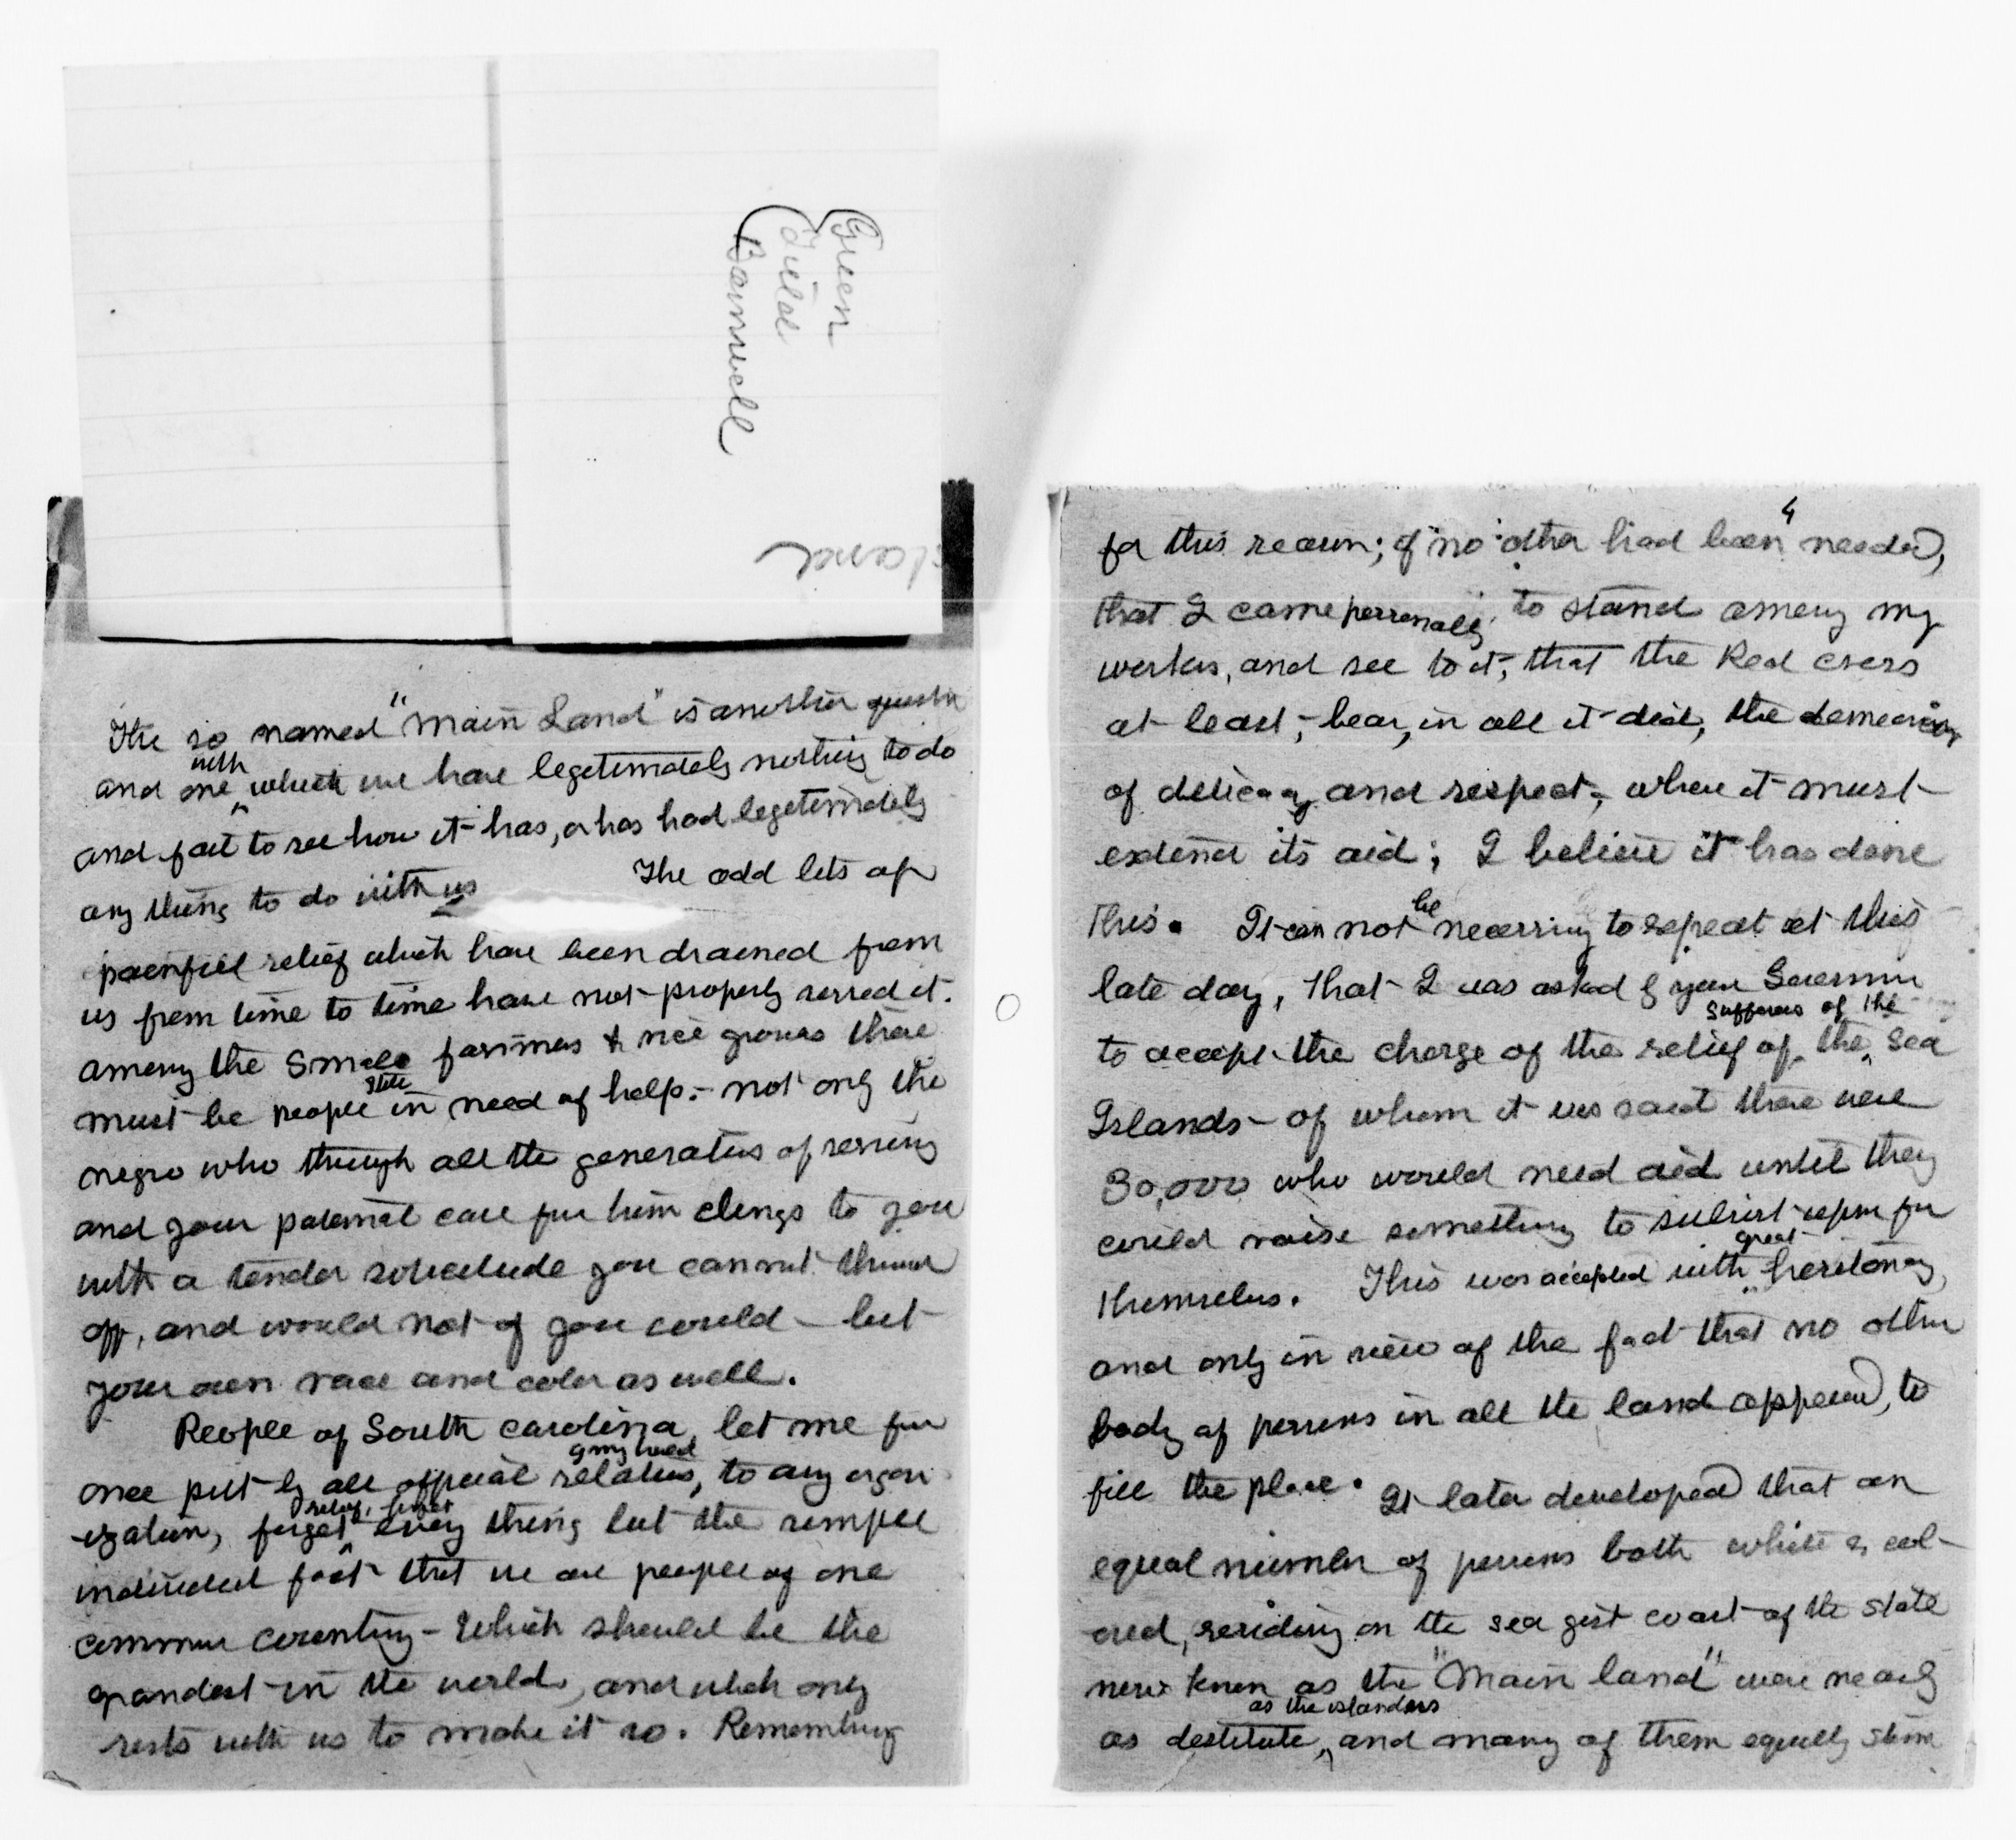 Green
Field
Barnwell
The so named "Main Land" is another
with
and one which we have legetimately nothing to do
and fail to see how it has, or has had legetimately
any thing to do with us The odd lots of
painful relief which have been drained from
us from time to time have not properly served it.
among the small farmers & rice growers there
still
must be people in need of help. - not only the
negro who through all the generations of serving
and your paternal care for him clings to you
with a tender solicitude you cannot throw
off, and would not if you could - but
your own race and color as well.
People of South Carolina, let me for
once put by all official relations, to any organ
ization, forget every thing but the simple
individual fact that we are people of one
common country - Which should be the
grandest in the world, and which only
rests with us to make it so. Remembring
4
for this reason; if "no other had been" needed,
that I came personally to stand among my
workers, and see to it, that the Red cross
at least, - bear, in all it did, the demeanor
of delicacy and respect, where it must
extend its aid; I believe it has done
this. It can not be necessary to repeat at this
late day, that I was asked by your Governor
sufferers of the
to accept the charge of the relief of the Sea
Islands - of whom it was said there were
30,000 who would need aid until they
could raise something to subsist upon for
great
themselves. This was accepted with hesitancy,
and only in view of the fact that no other
body of persons in all the land appeared, to
fill the place. It later developed that an
equal number of persons both white & col-
ored, residing on the sea girt coast of the state
now known as the "Main land" were nearly
as the islanders
as destitute, and many of them equally storm